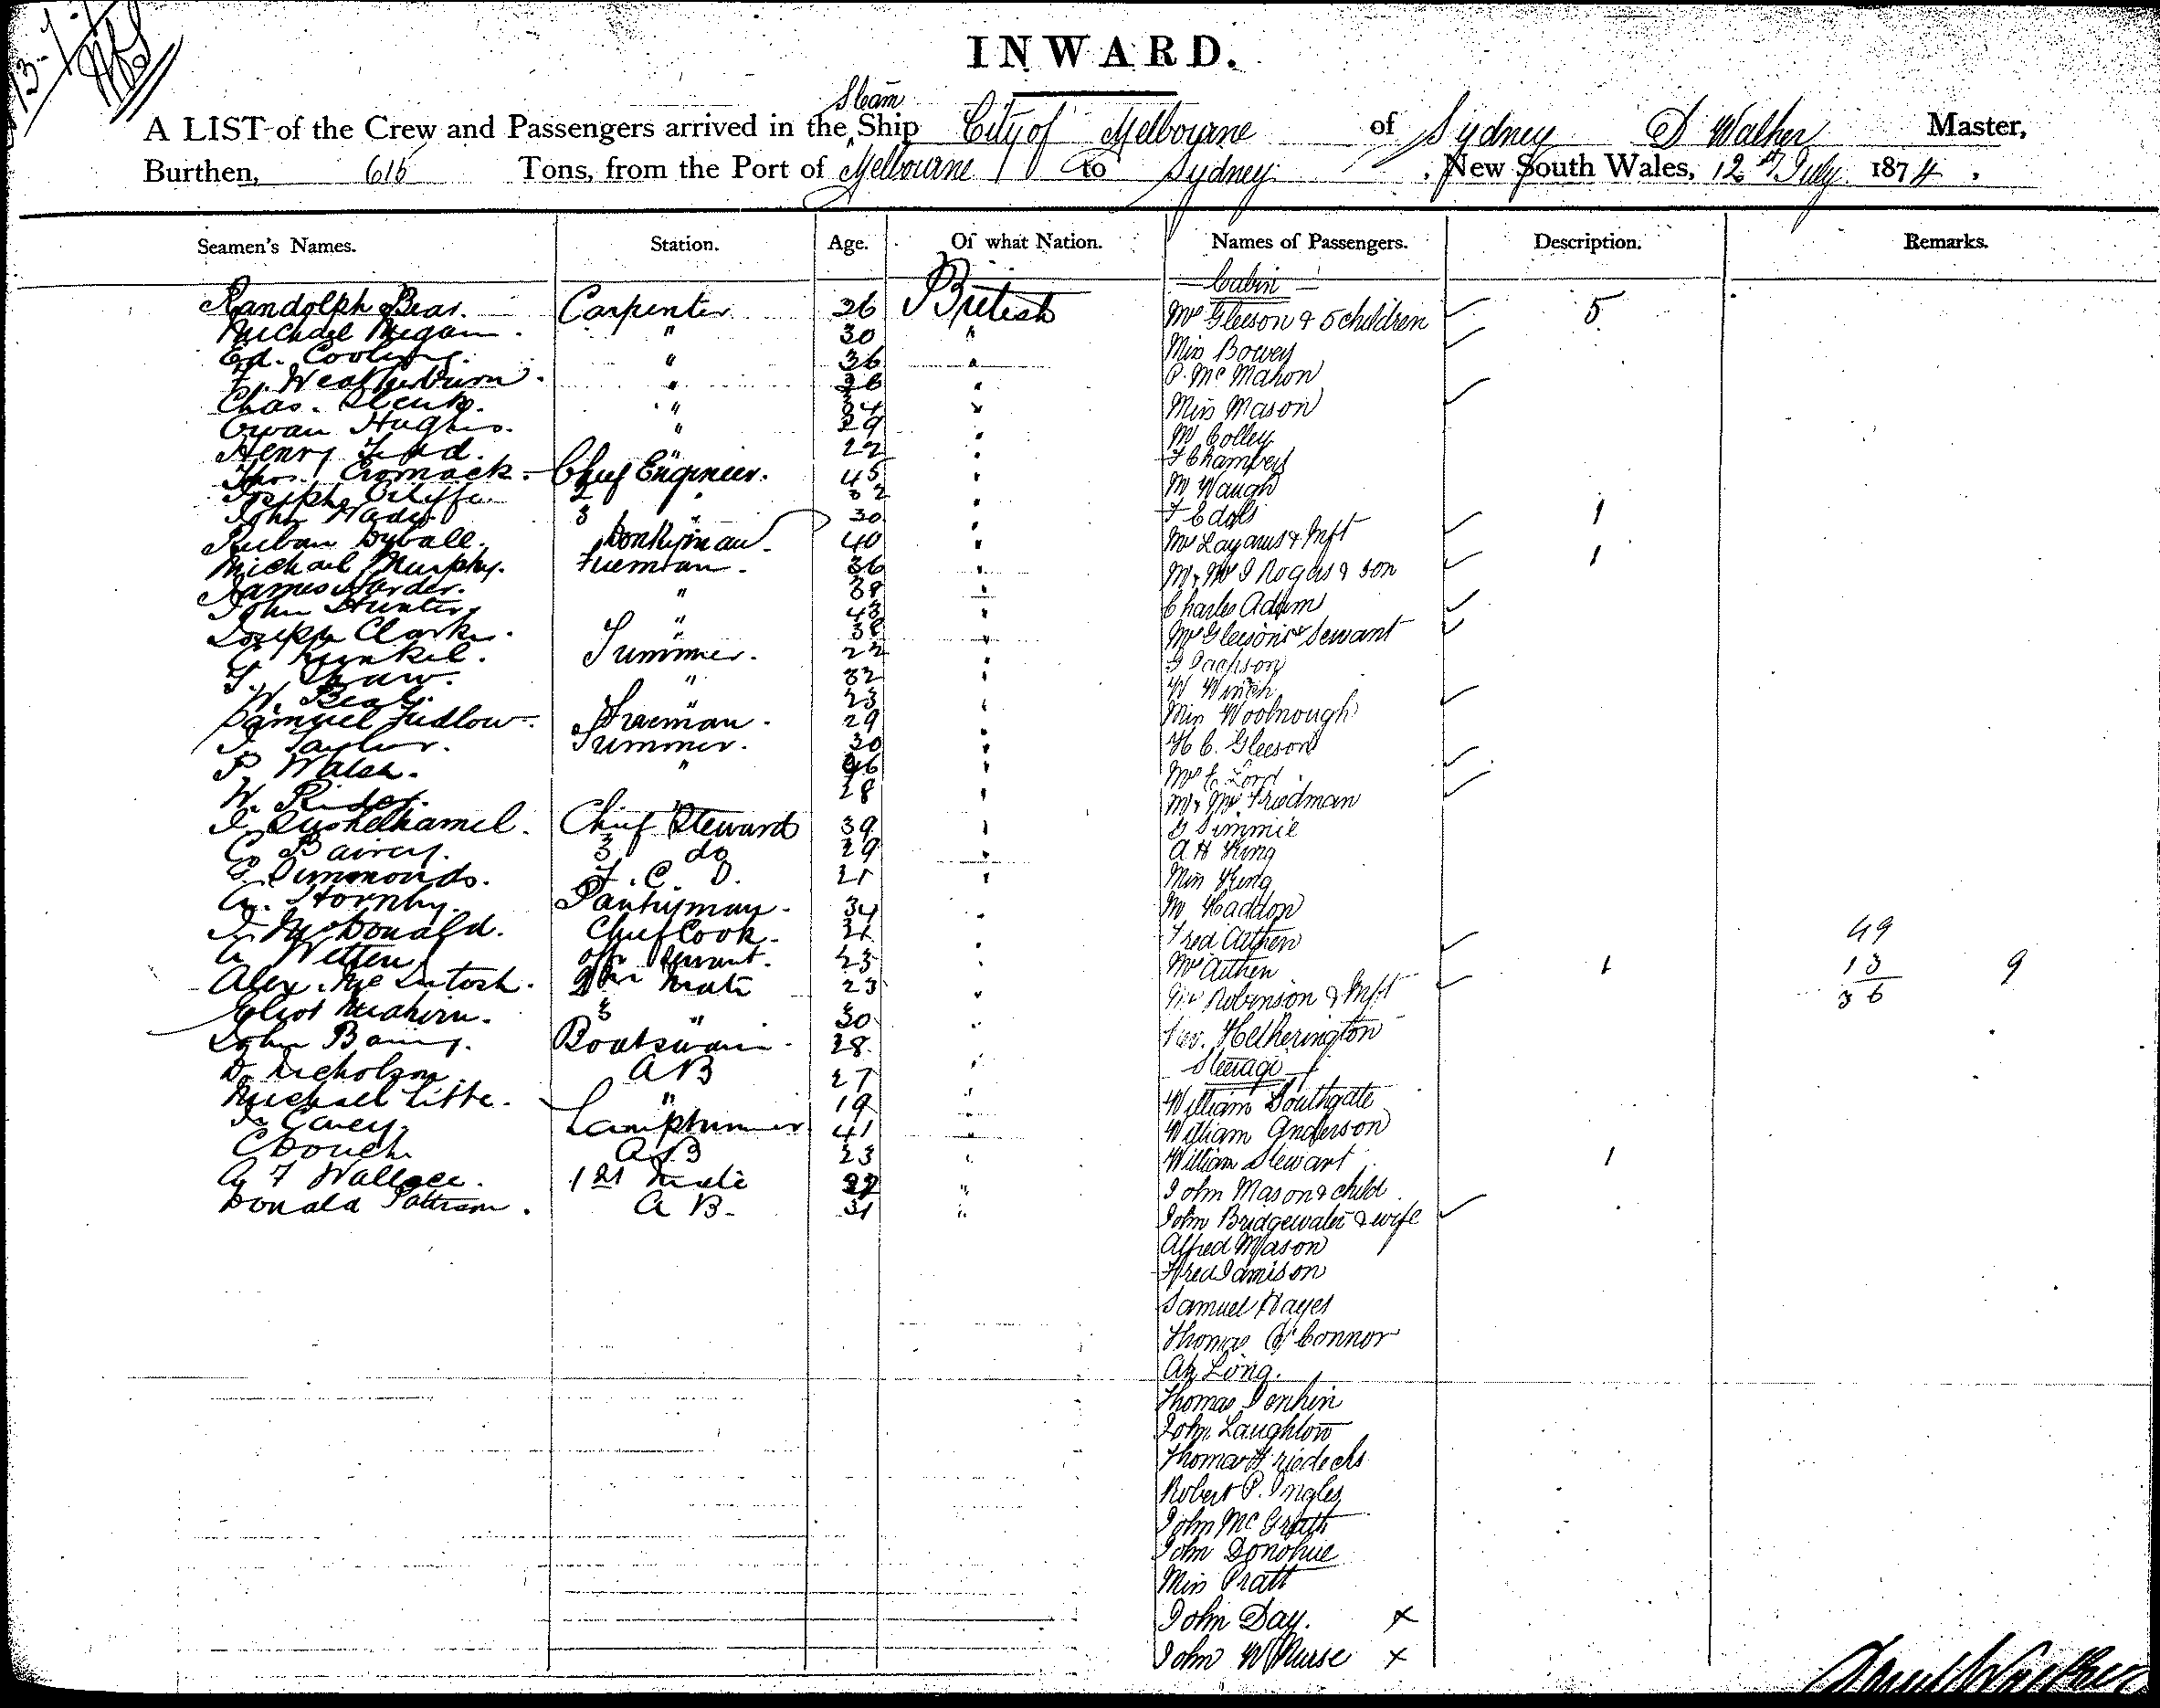 INWARD.
Steam
A LIST of the Crew and Passengers arrived in the Ship City of Melbourne of Sydney D Walker Master,
Burthen, 615 Tons, from the Port of Melbourne to Sydney, New South Wales, 12th July 1874.
Seamen's Names. Station. Age. Of what Nation. Names of Passengers. Description. Remarks.
Cabin
Randolph Bear. Carpenter 26 British Mrs Gleeson & 5 children 5
Michael " 30 " Miss Bowey
Ed. " 36 " P. McMahon
F. Weatherburn. " 26 " Miss Mason
Chas. " 34 " M Colley
Owan Hughes. " 29 " F Chambers
Henry " 22 " M Waugh
Thos. Cromack. Chief Engineer. 45 " F Edols 1
Joseph 2 " 32 " Mrs Lazarus & Inft
John 3 " 30 " Mr Mrs J Rogers & son 1
Ruban Dyball. Donkyman. 40 " Charles Adam
Michael Murphy. Fireman. 36 " Mrs Gleesons Servant
James Harder. " 38 " G Jackson
John Hunter " 43 " W Winch
Joseph Clarke. " 38 " Miss Woolnough
C. Kunkel. Trimmer. 22 " H C. Gleeson
T. Shaw. " 32 " Mrs C Lord
W. Beal. " 23 " Mr Mrs Friedman
Samuel Ludlow. Fireman. 29 " G Simmie
J. Taylor. Trimmer. 30 " A H King
P. Walsh. " 46 " Miss King
W. Rider. " 28 " M Haddon
J. Chief Steward 39 " Fred Aitken 49
C. 3 do 29 " Mrs Aitken 1 13 9
S. Simmonds. F. C. D. 21 " Mrs Robinson & Inft 36
A. Hornby. Pantryman. 34 " Rev. Hetherington
J. McDonald. Chief Cook. 21 " Steerage
A Wetten Offr Servant. 23 " William Southgate
Alex. McIntosh. 2nd Mate 23 " William Anderson
Eliot 3 " 30 " William Stewart 1
John Boatswain. 28 " John Mason & child
D. Nicholson A B 27 " John Bridgewater & wife
Michael " 19 " Alfred Mason
J. Carey. Lamptrimmer 41 " Fred Jamison
C Douch A B 23 " Samuel Hayes
A F Wallace. 1st Mate 32 " Thomas O'Connor
Donald Patterson. A B. 31 " Ah Long.
Thomas Jenkin
John Laughlow
Thomas
Robert P. Ingles
John McGrath
John Donohue
Miss Pratt
John Day. x
John W Nurse x